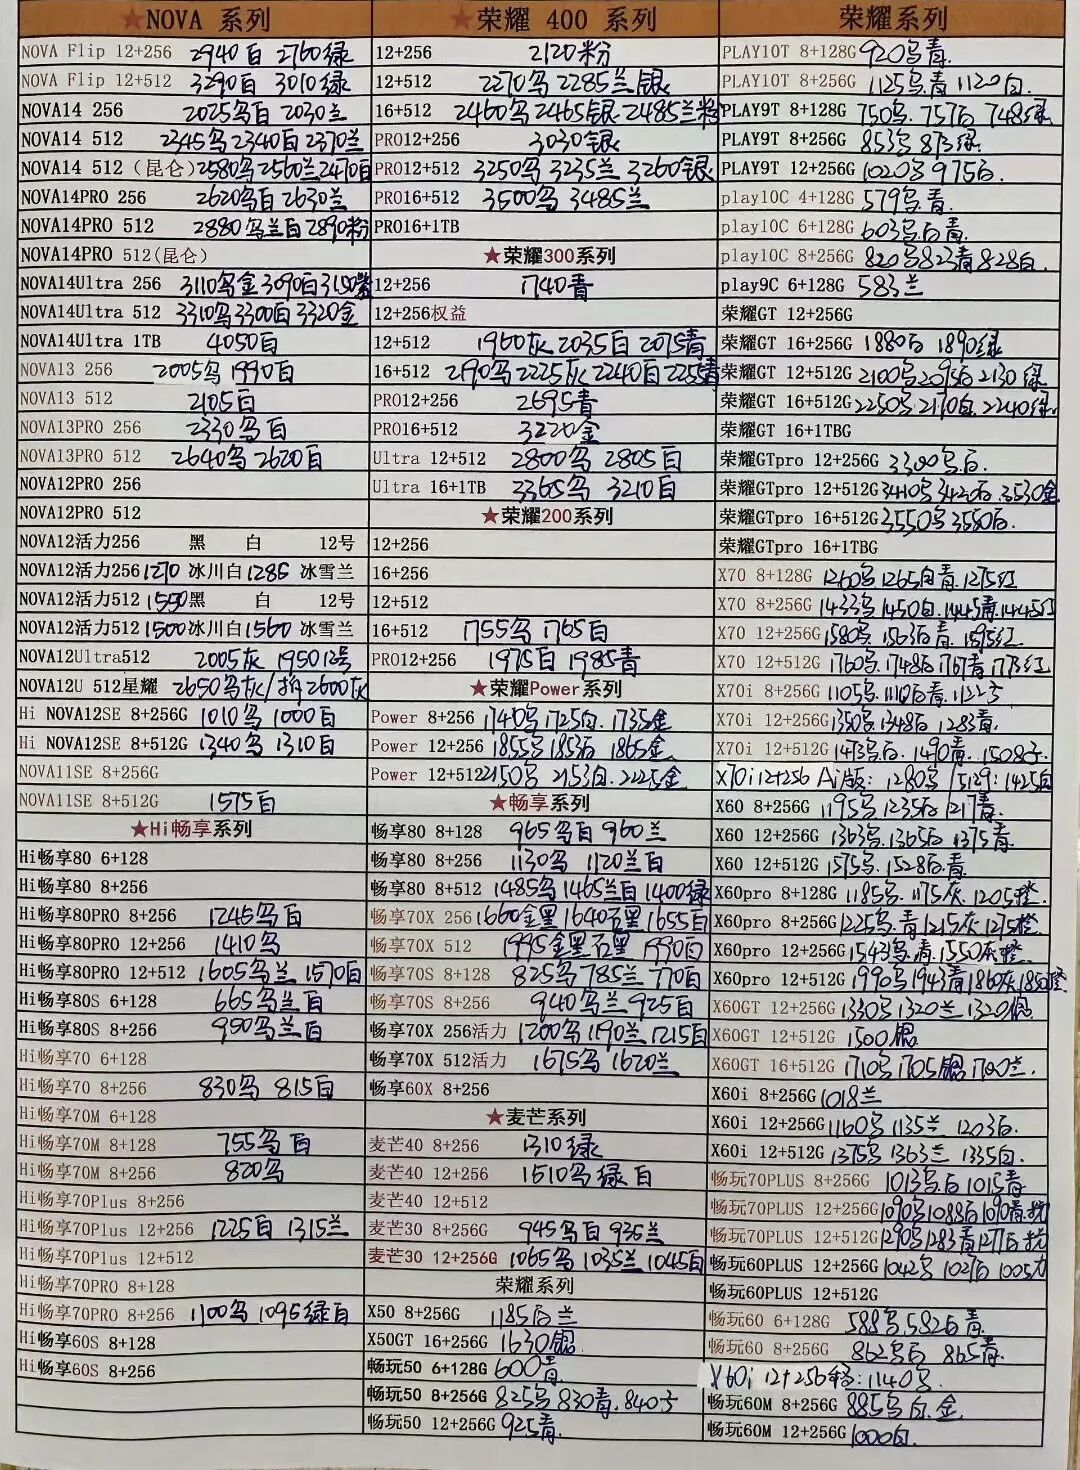 ★NOVA 系列
NOVA Flip 12+256 2940白 2760绿
NOVA Flip 12+512 3290白 3010绿
NOVA14 256 2025乌白 2030兰
NOVA14 512 2345乌 2340白 2370兰
NOVA14 512 (昆仑) 2580乌 2560兰 2470白
NOVA14PRO 256 2620乌白 2630兰
NOVA14PRO 512 2880乌兰白 2890粉
NOVA14PRO 512(昆仑)
NOVA14Ultra 256 3110乌金 3090白
NOVA14Ultra 512 3310乌 3300白 3320金
NOVA14Ultra 1TB 4050白
NOVA13 256 2005乌 1990白
NOVA13 512 2105白
NOVA13PRO 256 2330乌白
NOVA13PRO 512 2640乌 2620白
NOVA12PRO 256
NOVA12PRO 512
NOVA12活力256 黑 白 12号
NOVA12活力256 1270 冰川白 1285 冰雪兰
NOVA12活力512 1550 黑 白 12号
NOVA12活力512 1500 冰川白 1560 冰雪兰
NOVA12Ultra512 2005灰 1950 12号
NOVA12U 512星耀 2650乌灰/拆2600灰
Hi NOVA12SE 8+256G 1010乌 1000白
Hi NOVA12SE 8+512G 1340乌 1310白
NOVA11SE 8+256G
NOVA11SE 8+512G 1575白
★Hi畅享系列
Hi畅享80 6+128
Hi畅享80 8+256
Hi畅享80PRO 8+256 1245乌白
Hi畅享80PRO 12+256 1410乌
Hi畅享80PRO 12+512 1605乌兰 1570白
Hi畅享80S 6+128 665乌兰白
Hi畅享80S 8+256 950乌兰白
Hi畅享70 6+128
Hi畅享70 8+256 830乌 815白
Hi畅享70M 6+128
Hi畅享70M 8+128 755乌白
Hi畅享70M 8+256 820乌
Hi畅享70Plus 8+256
Hi畅享70Plus 12+256 1225白 1315兰
Hi畅享70Plus 12+512
Hi畅享70PRO 8+128
Hi畅享70PRO 8+256 1100乌 1095绿白
Hi畅享60S 8+128
Hi畅享60S 8+256
★荣耀 400 系列
12+256 2120粉
12+512 2270乌 2285兰银
16+512 2460乌 2465银 2485兰粉
PRO12+256 3030银
PRO12+512 3250乌 3235兰 3260银
PRO16+512 3500乌 3485兰
PRO16+1TB
★荣耀300系列
12+256 1740青
12+256权益
12+512 1960灰 2035白 2075青
16+512 2190乌 2225灰 2240白 2255青
PRO12+256 2695青
PRO16+512 3220金
Ultra 12+512 2800乌 2805白
Ultra 16+1TB 3365乌 3210白
★荣耀200系列
12+256
16+256
12+512
16+512 1755乌 1765白
PRO12+256 1975白 1985青
★荣耀Power系列
Power 8+256 1740乌 1725白. 1735金
Power 12+256 1855乌 1853白 1865金
Power 12+512 2150乌 2153白. 2225金
★畅享系列
畅享80 8+128 965乌白 960兰
畅享80 8+256 1130乌 1120兰白
畅享80 8+512 1485乌 1465兰白 1400绿
畅享70X 256 1660金黑 1640石黑 1655白
畅享70X 512 1995金黑石黑 1990白
畅享70S 8+128 825乌 785兰 770白
畅享70S 8+256 940乌兰 925白
畅享70X 256活力 1200乌 1190兰 1215白
畅享70X 512活力 1675乌 1620兰
畅享60X 8+256
★麦芒系列
麦芒40 8+256 1310绿
麦芒40 12+256 1510乌绿白
麦芒40 12+512
麦芒30 8+256G 945乌白 935兰
麦芒30 12+256G 1065乌 1035兰 1045白
荣耀系列
X50 8+256G 1185白兰
X50GT 16+256G 1630银
畅玩50 6+128G 600青
畅玩50 8+256G 825乌 830青. 840子
畅玩50 12+256G 925青.
荣耀系列
PLAY10T 8+128G 920乌青.
PLAY10T 8+256G 1125乌青 1120白.
PLAY9T 8+128G 750乌. 757白 748绿
PLAY9T 8+256G 853乌 873绿.
PLAY9T 12+256G 1020乌 975白.
play10C 4+128G 579乌青.
play10C 6+128G 603乌白青.
play10C 8+256G 820乌 823青 828白.
play9C 6+128G 583兰
荣耀GT 12+256G
荣耀GT 16+256G 1880白 1890绿
荣耀GT 12+512G 2100乌 2095白 2130绿
荣耀GT 16+512G 2250乌 2170白. 2240绿.
荣耀GT 16+1TBG
荣耀GTpro 12+256G 3300乌白.
荣耀GTpro 12+512G 3410乌 3420白. 3530金
荣耀GTpro 16+512G 3550乌 3580白.
荣耀GTpro 16+1TBG
X70 8+128G 1260乌 1265白青. 1275红
X70 8+256G 1433乌. 1450白. 1445青. 1445红
X70 12+256G 1580乌. 1563白青. 1595红
X70 12+512G 1760乌. 1748白 1767青 1773红
X70i 8+256G 1105乌. 1110白青.
X70i 12+256G 1350乌 1348白 1283青.
X70i 12+512G 1473乌白. 1490青. 1508子.
X70i 12+256 Ai版: 1280乌 / 512g: 1425白
X60 8+256G 1195乌 1235白 1217青.
X60 12+256G 1363乌. 1365白 1375青
X60 12+512G 1575乌. 1528白. 青.
X60pro 8+128G 1185乌. 1175灰 1205橙.
X60pro 8+256G 1225乌. 青 1215灰 1275橙
X60pro 12+256G 1543乌. 青. 1550灰橙.
X60pro 12+512G 1990乌 1943青 1860灰 1850橙
X60GT 12+256G 1330乌 1320兰 1320银
X60GT 12+512G 1500银
X60GT 16+512G 1710乌 1705银 1700兰.
X60i 8+256G 1018兰
X60i 12+256G 1160乌 1135兰 1203白.
X60i 12+512G 1375乌 1363兰 1335白.
畅玩70PLUS 8+256G 1013乌白 1015青
畅玩70PLUS 12+256G 1090乌 1088白 1090青.
畅玩70PLUS 12+512G 1290乌 1283青 1277白
畅玩60PLUS 12+256G 1042乌 1027白
畅玩60PLUS 12+512G
畅玩60 6+128G 588乌 582白青.
畅玩60 8+256G 862乌白 865青.
X60i 12+256 : 1140乌.
畅玩60M 8+256G 885乌白. 金.
畅玩60M 12+256G 1000白.